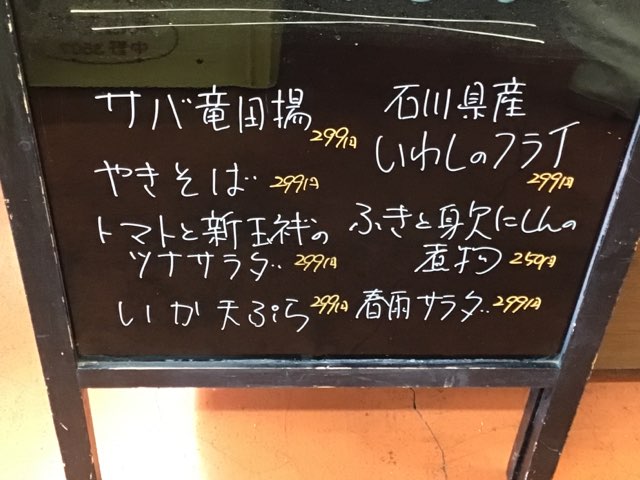 サバ竜田揚
299円
やきそば 299円
トマトと新玉袮の
ツナサラダ 299円
いか天ぷら 299円
石川県産
いわしのフライ
299円
ふきと身欠にしんの
煮物 250円
春雨サラダ 299円